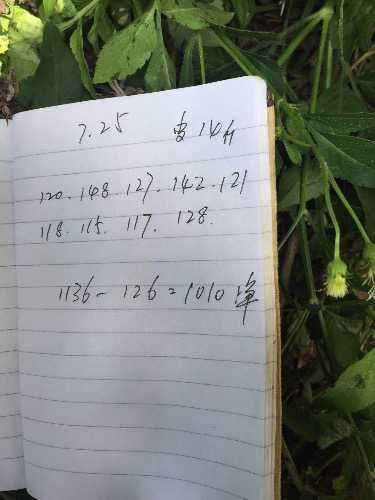 7.25 皮14斤
120.148.127.142.121
118.115.117.128.
1136-126=1010